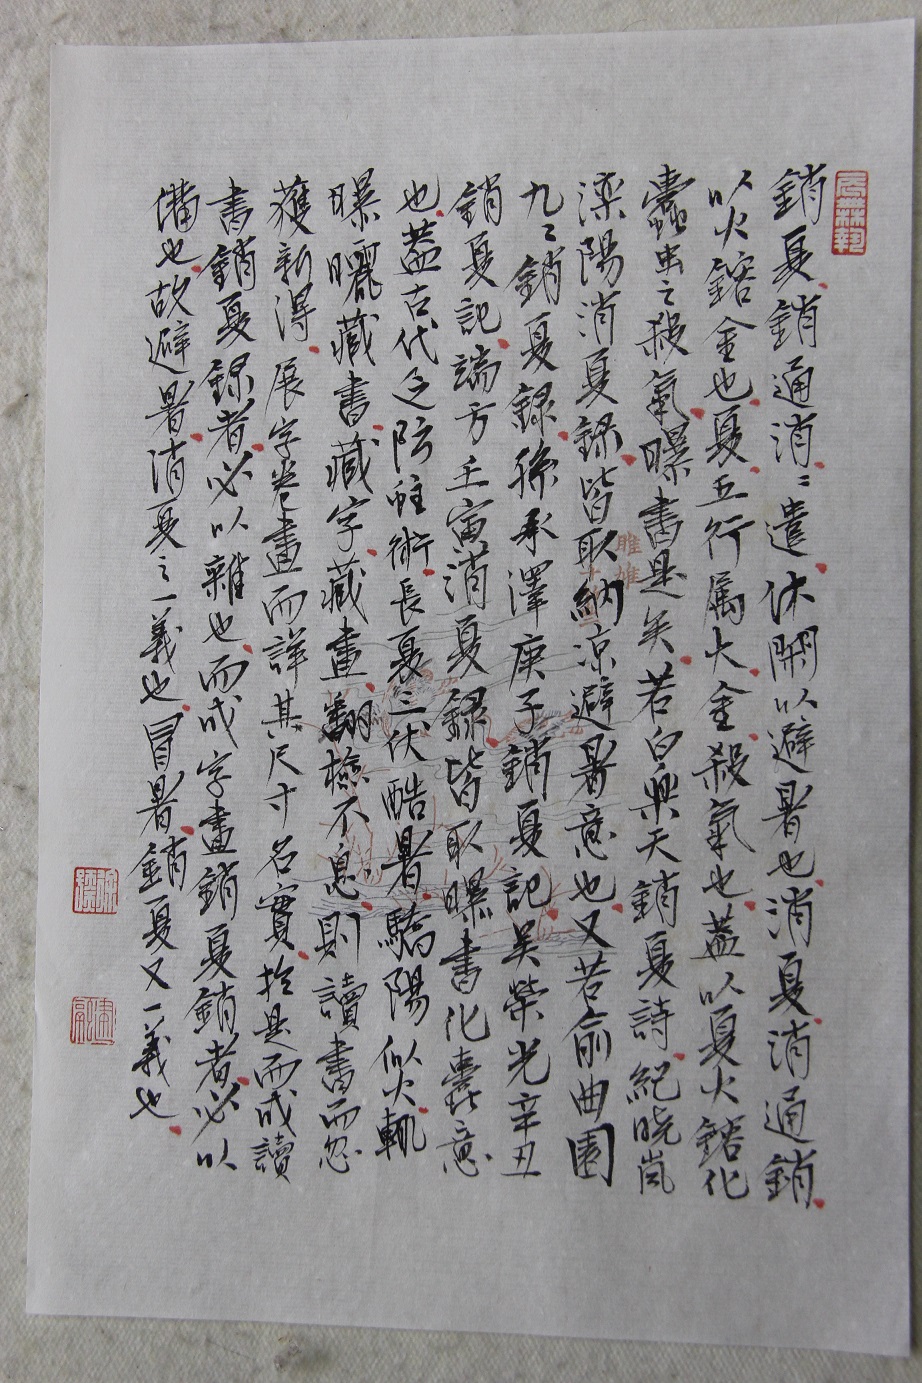 銷夏銷通消〻遣休閑以避暑也消夏消通銷
以火鎔金也夏五行属火金殺氣也蓋以夏火鎔化
蠹虫之殺氣曝書是矣若白樂天銷夏詩紀曉嵐
灤陽消夏錄皆取納凉避暑意也又若俞曲園
九〻銷夏錄孫承澤庚子銷夏記吴榮光辛丑
銷夏記端方壬寅消夏錄皆取曝書化蠹意
也蓋古代之防蛀術長夏三伏酷暑驕陽似火輒
曝曬藏書藏字藏畫翻檢不息則讀書而忽
獲新得展字卷畫而詳其尺寸名實於是而成讀
書銷夏錄者必以雜也而成字畫銷夏銷者必以
備也故避暑消夏之一義也冒暑銷夏又一義也